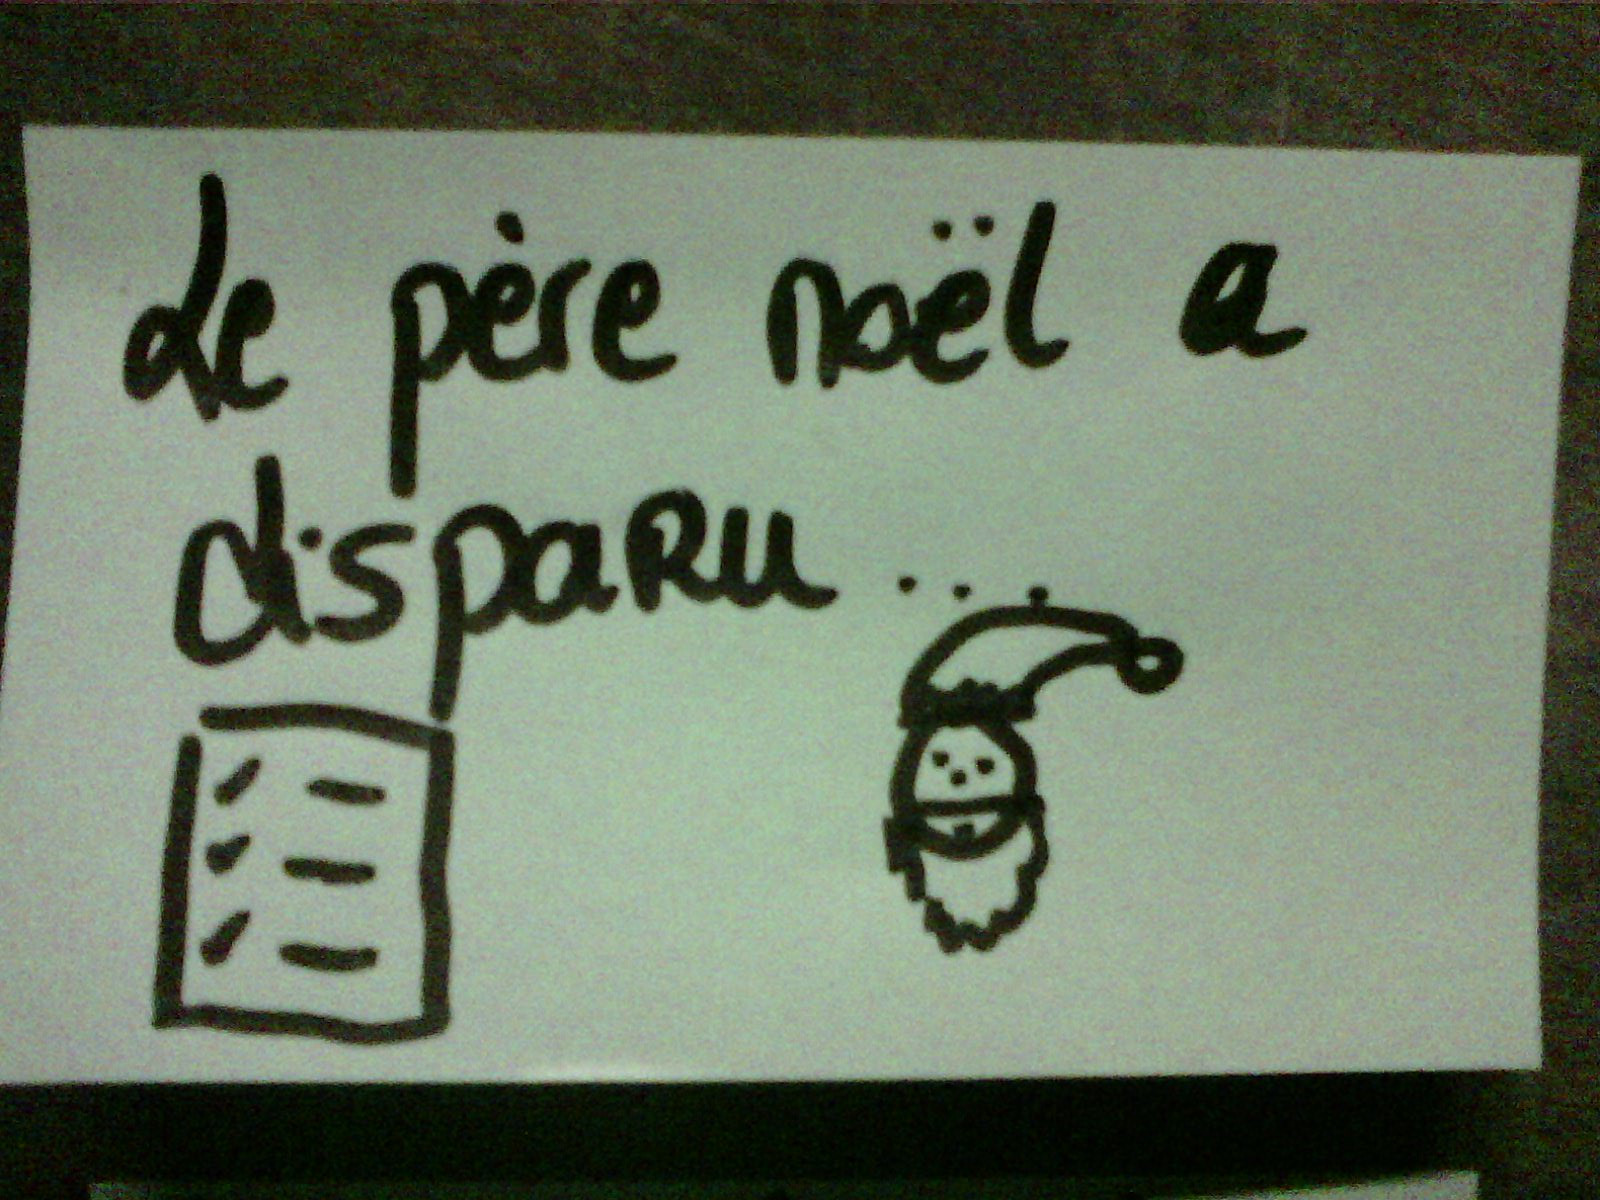 Le père noël a
disparu...